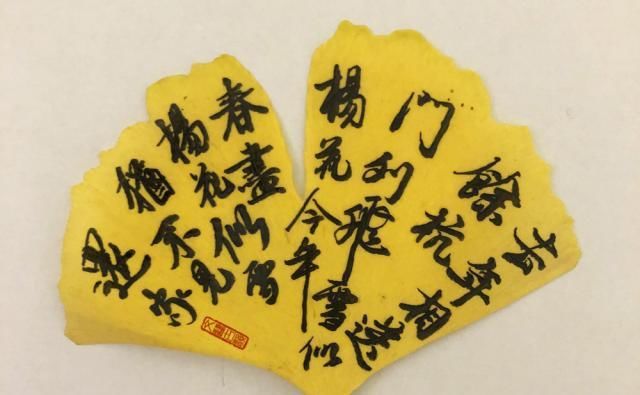 去年相送
餘杭
門外飛雪似
楊花今年
春盡
楊花似雪
猶不見
還家